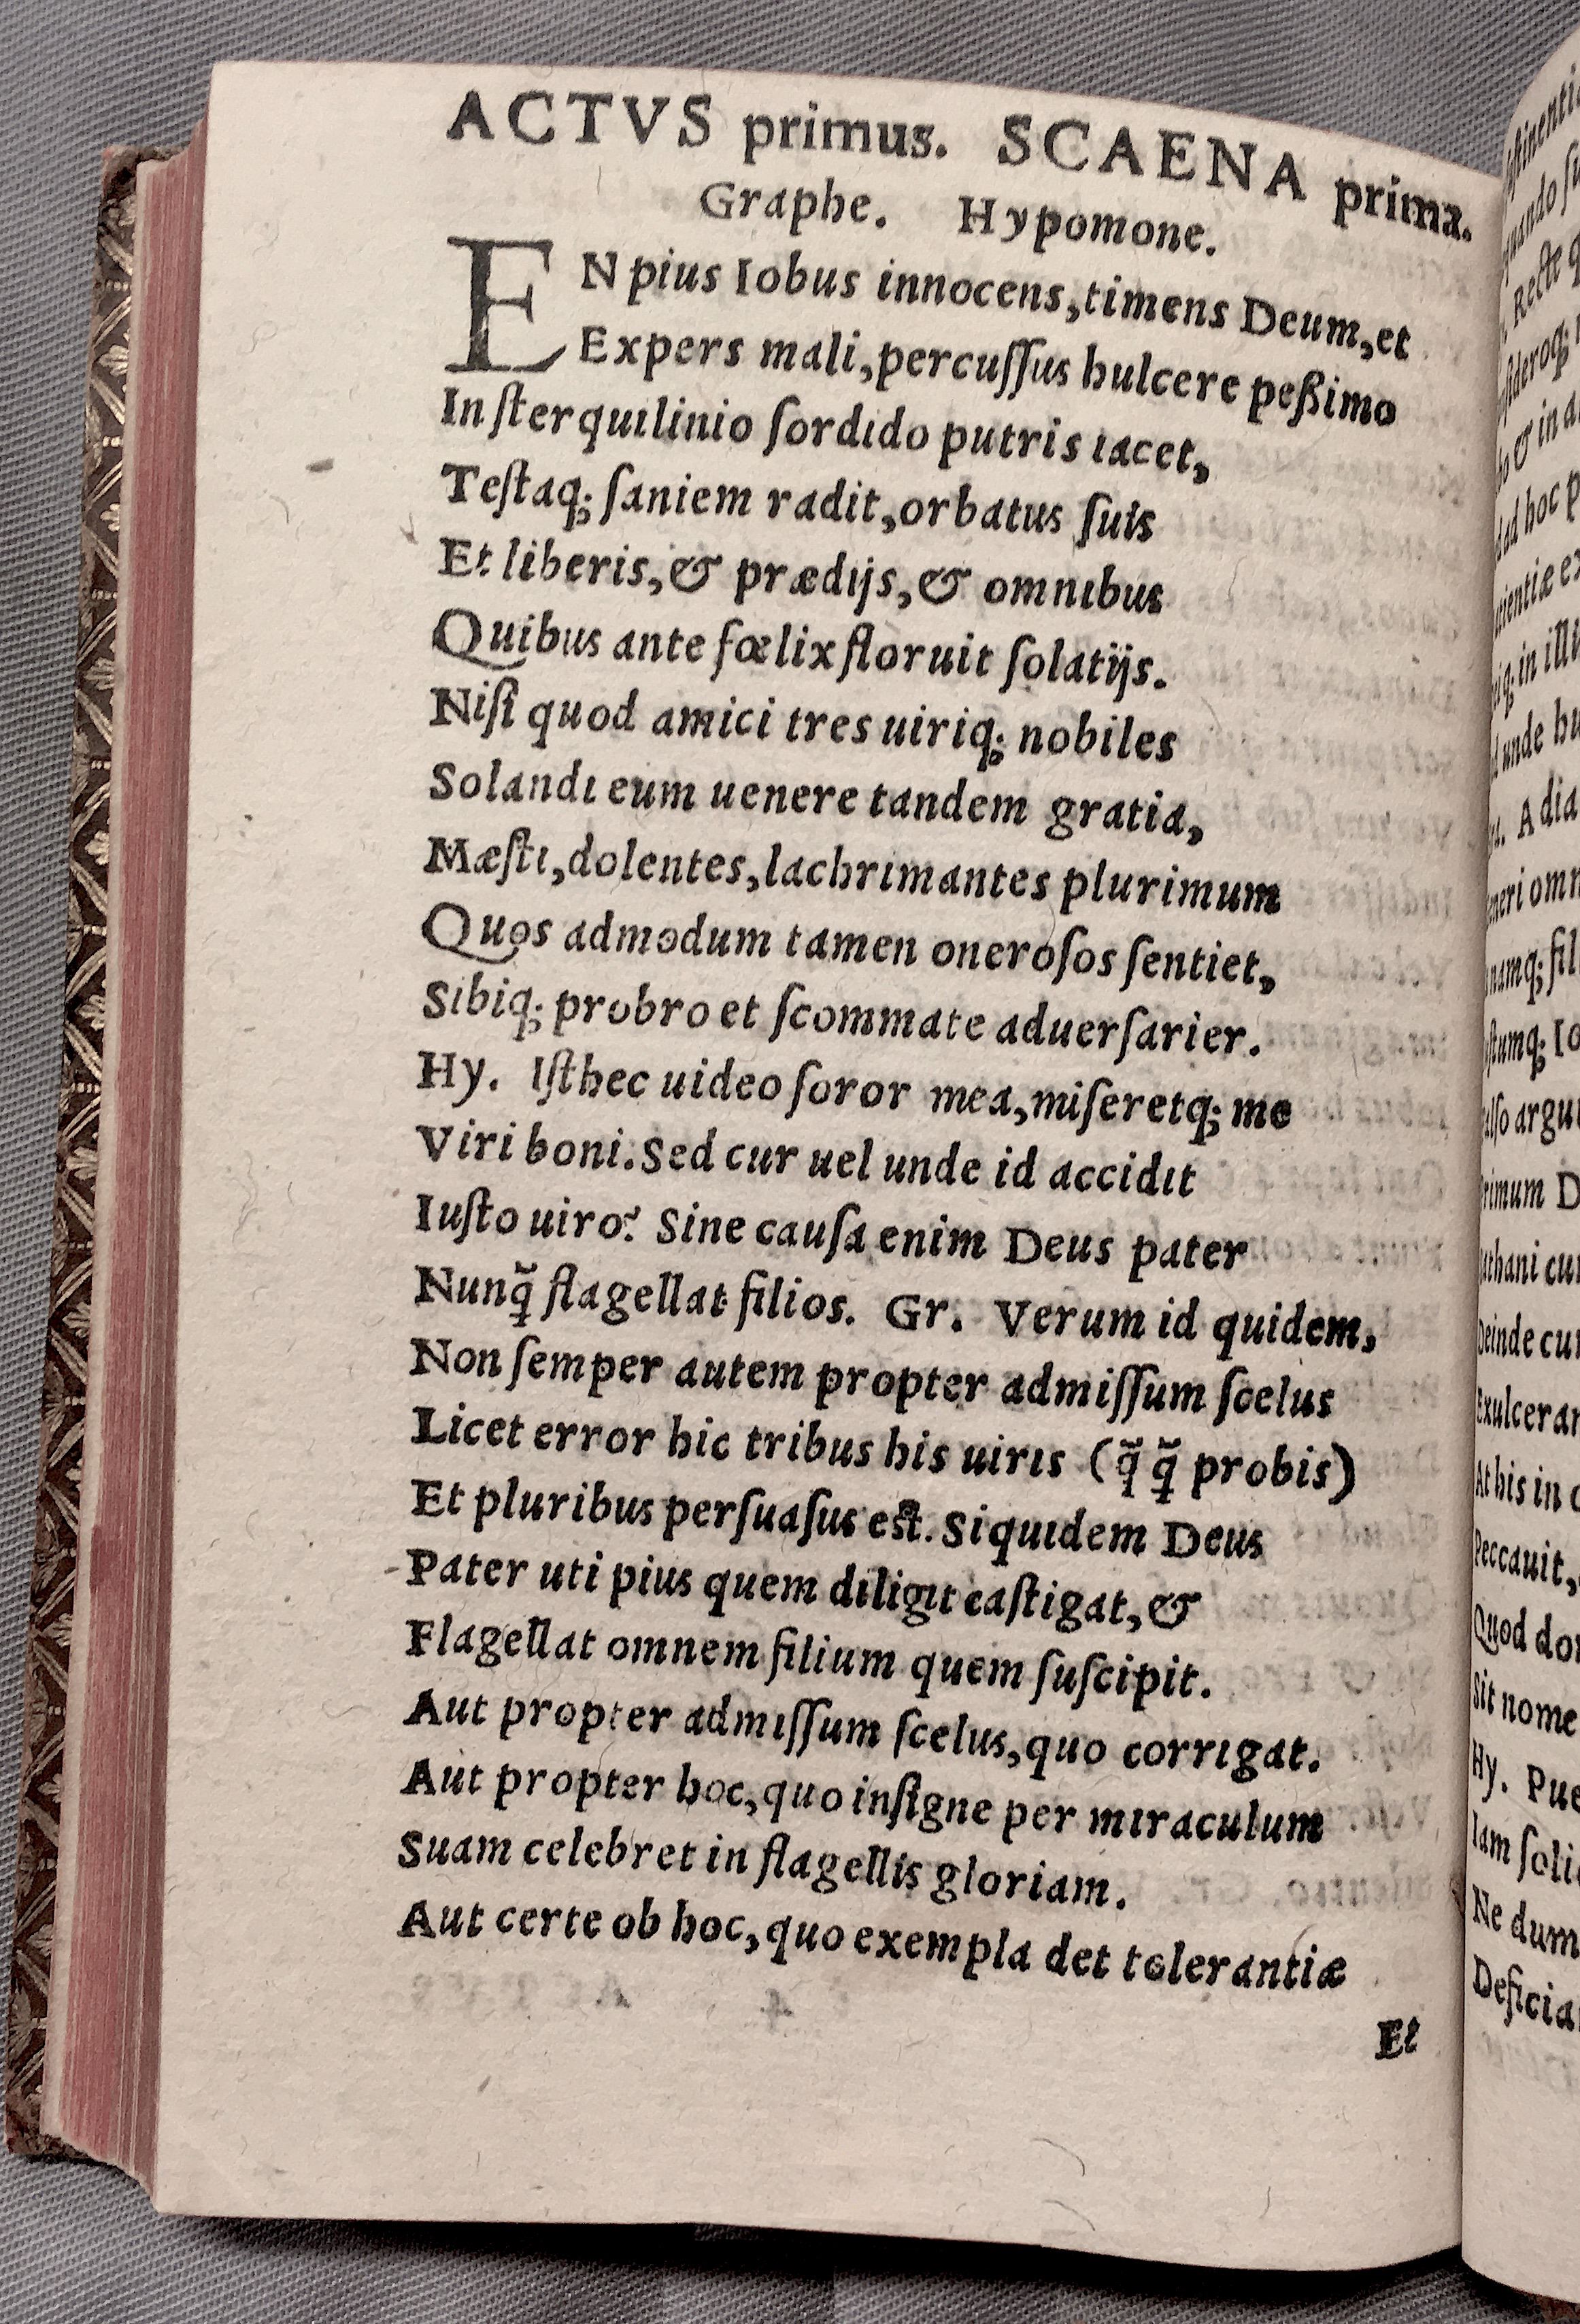 ACTVS primus. SCAENA prima.
Graphe. Hypomone.
EN pius Iobus innocens, timens Deum, et
Expers mali, percuſſus hulcere peßimo
In ſterquilinio ſordido putris iacet,
Teſtaq; ſaniem radit, orbatus ſuis
Et liberis, & prædijs, & omnibus
Quibus ante fœlix floruit ſolatijs.
Niſi quod amici tres uiriq; nobiles
Solandi eum uenere tandem gratia,
Mæſti, dolentes, lachrimantes plurimum
Quos admodum tamen oneroſos ſentiet,
Sibiq; probro et ſcommate aduerſarier.
Hy. Iſthec uideo ſoror mea, miſeretq; me
Viri boni. Sed cur uel unde id accidit
Iuſto uiro? Sine cauſa enim Deus pater
Nunq̃ flagellat filios. Gr. Verum id quidem,
Non ſemper autem propter admiſſum ſcelus
Licet error hic tribus his uiris (q̃ q̃ probis)
Et pluribus perſuaſus eſt. Siquidem Deus
Pater uti pius quem diligit caſtigat, &
Flagellat omnem filium quem ſuſcipit.
Aut propter admiſſum ſcelus, quo corrigat.
Aut propter hoc, quo inſigne per miraculum
Suam celebret in flagellis gloriam.
Aut certe ob hoc, quo exempla det tolerantiæ
Et
. Recte
& in
ad hoc
in
unde
. A
argu
rimum
cu
Deinde
Exulcerar
At his in
Peccauit,
Quod
Sit nome
Hy. Pue
Iam
Ne dum